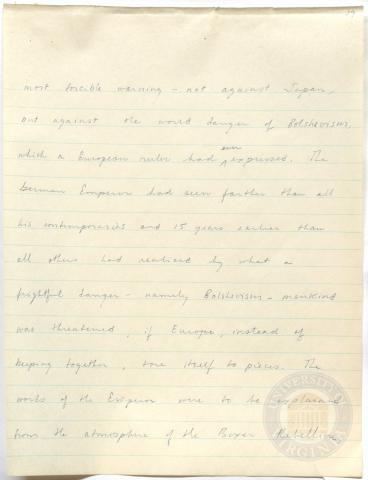 39
most forcible warning – not against Japan,
but against the world danger of Bolshevism,
which a European ruler had ever expressed. The
German Emperor had seen farther than all
his contemporaries and 15 years earlier than
all others had realised by what a
frightful danger – namely Bolshevism – mankind
was threatened, if Europe, instead of
keeping together, tore itself to pieces. The
words of the Emperor were to be explained
from the atmosphere of the Boxer Rebellion
UNIVERSITY
VIRGINIA